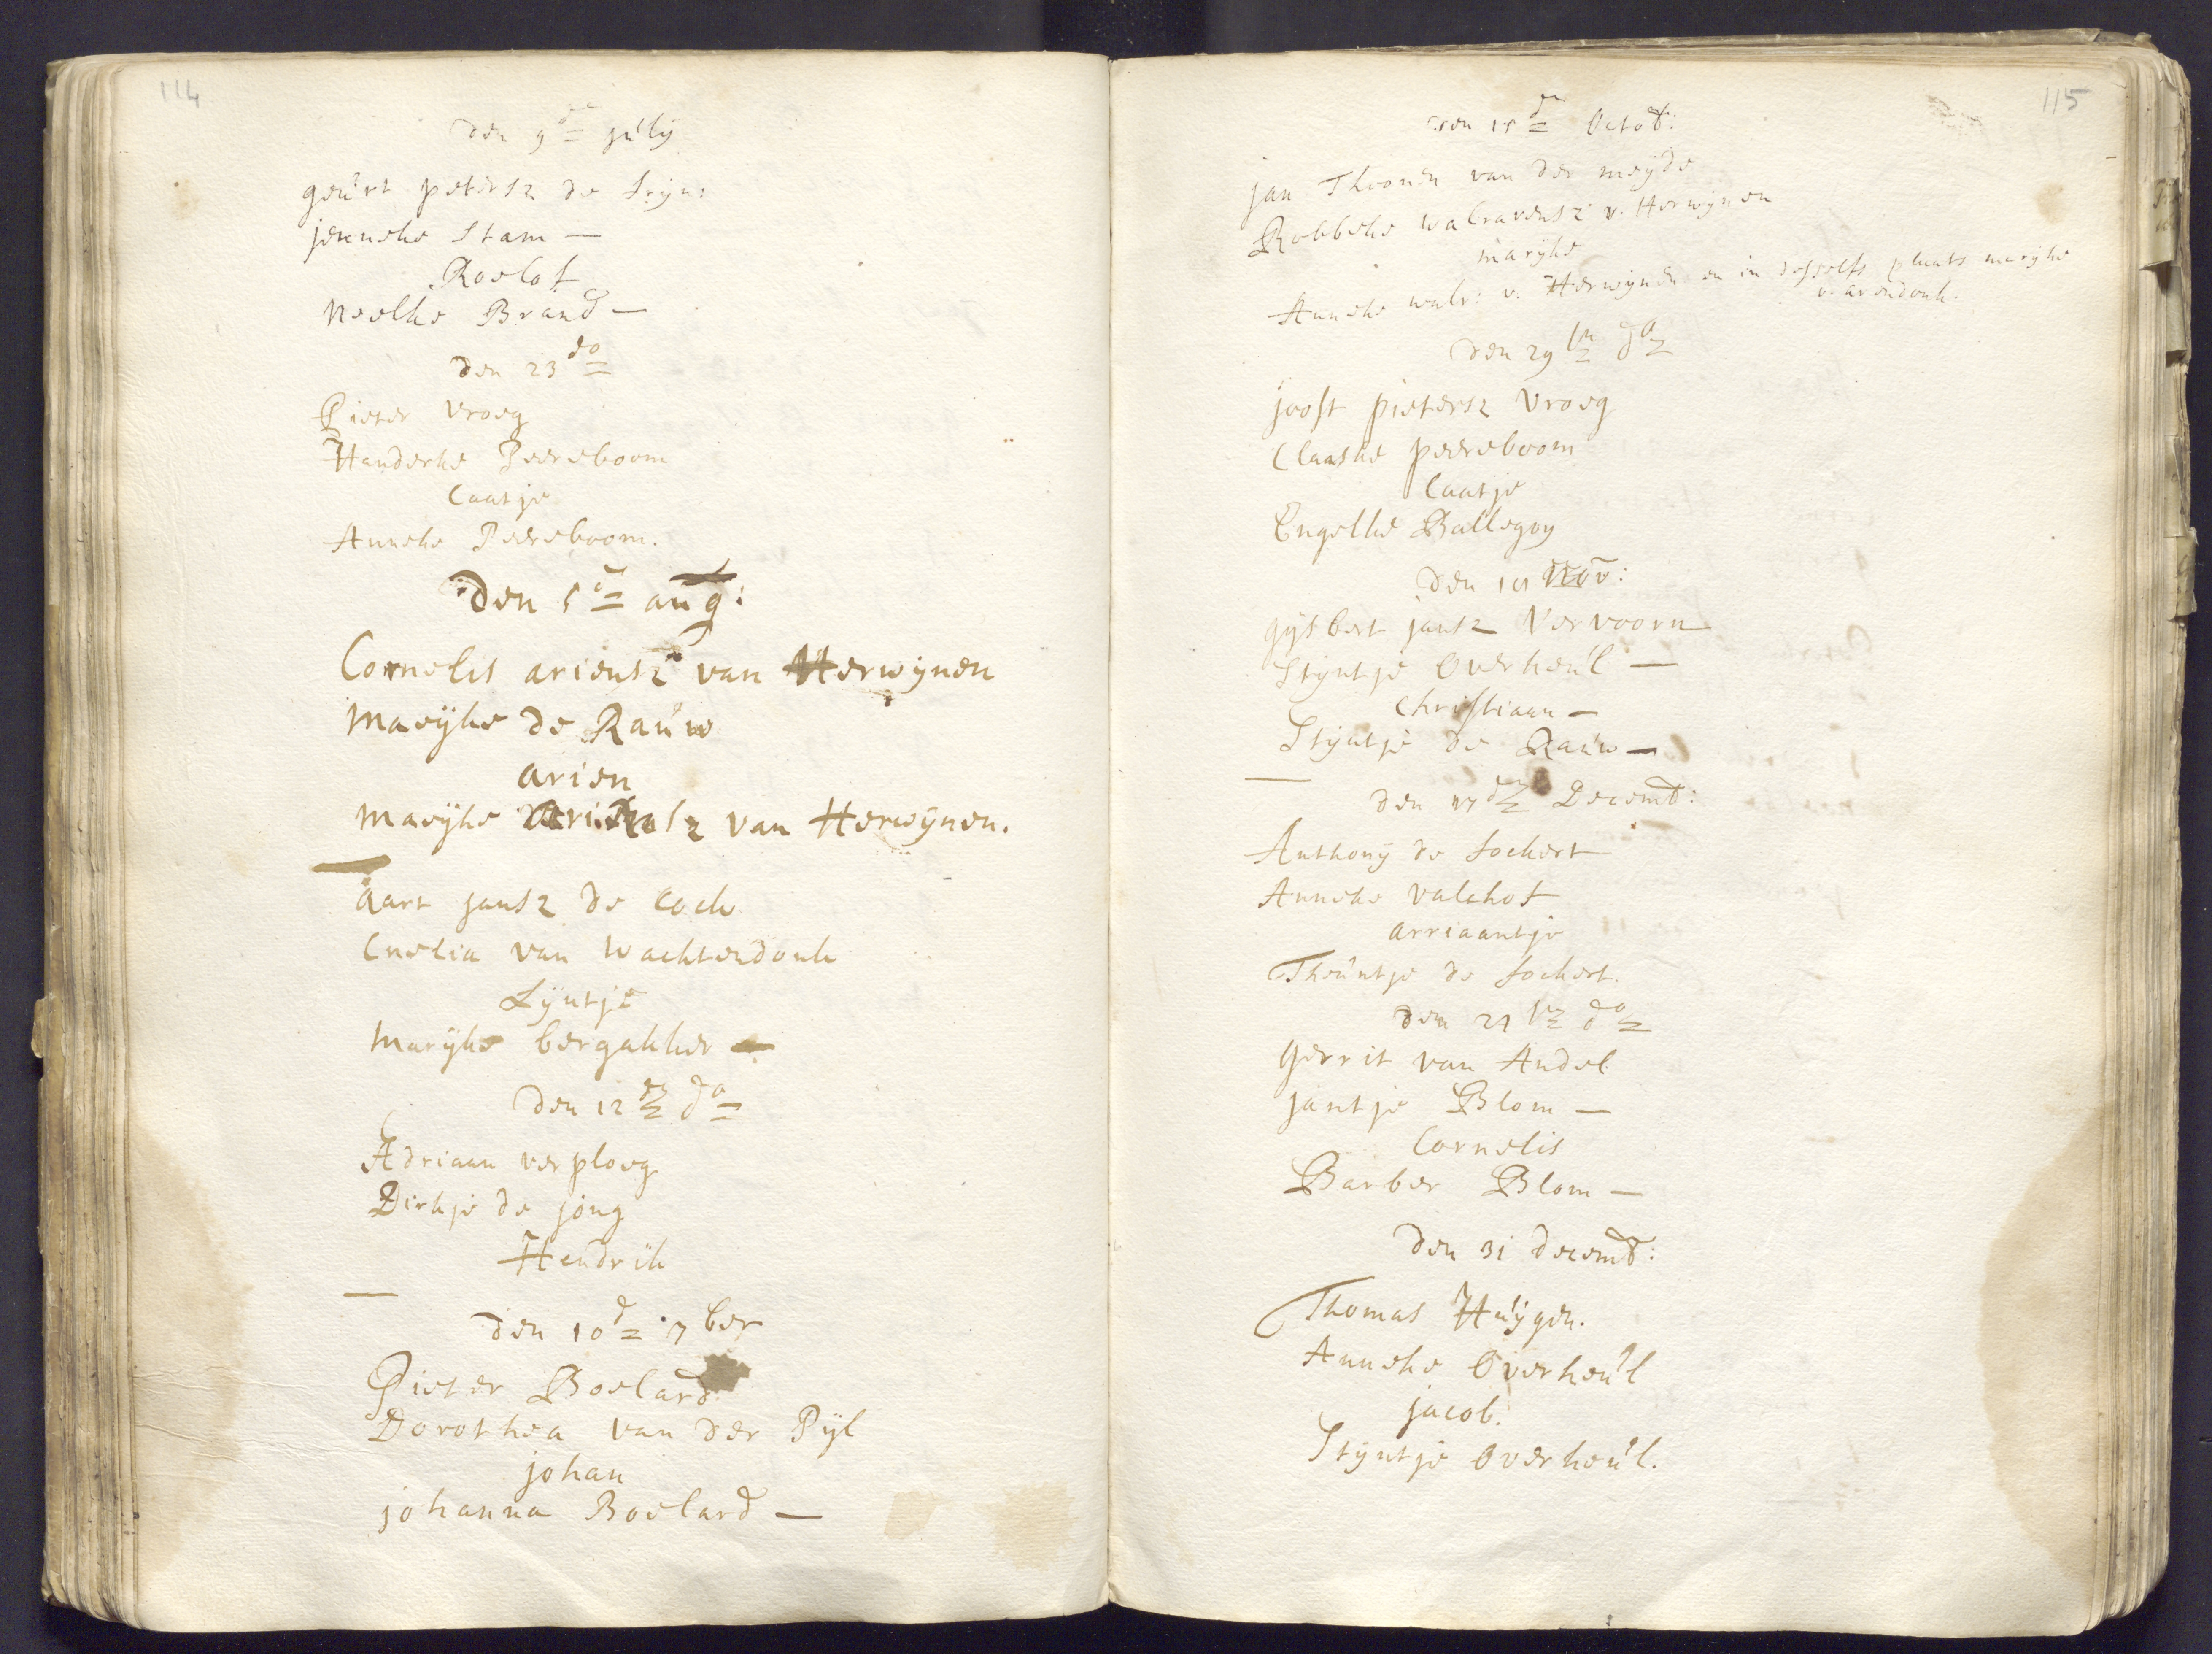 114
den 9de july
geurt petersz de Fryn:
jenneke Stam —
Roelof
Neelke Brand —
den 23 do
Pieter vroeg
Handerke Peereboom
Caatje
Anneke Peereboom.
Den 5de aug:
Cornelis ariensz van Herwijnen
Maeijke de Rauw
arien
Maeijke Ariensz van Herwijnen.
Aart jansz de Cock
Cnelia van Wachtendonk
Lijntje
Marijke bergakker —
Den 12de do
Adriaan verploeg
Dirkje de jong
Hendrik
den 10de 7ber
Pieter Boelard
Dorothea van der Pijl
johan
johanna Boelard —
115
den 15de Octob:
jan Thoonen van der meyde
Robbeke walravensz v. Herwijnen
marijke
Anneke walr: v. Herwijnen en in desselfs plaats marijke
v. arendonk.
Den 29ste do
joost pietersz vroeg
Claaske peereboom
Caatje
Engelke Ballegoy
den 19 Nov:
gijsbert jansz Vervoorn
Stijntje Overheul —
Christiaan —
Stijntje de Rauw —
den 17de Decemb:
Anthonij de Fockert
Anneke valckof
arriaantje
Theuntje de Fockert.
den 21ste do
Gerrit van Andel
jantje Blom —
Cornelis
Barber Blom —
den 31 decemb:
Thomas Huijgen.
Anneke Overheul
jacob.
Stijntje Overheul.